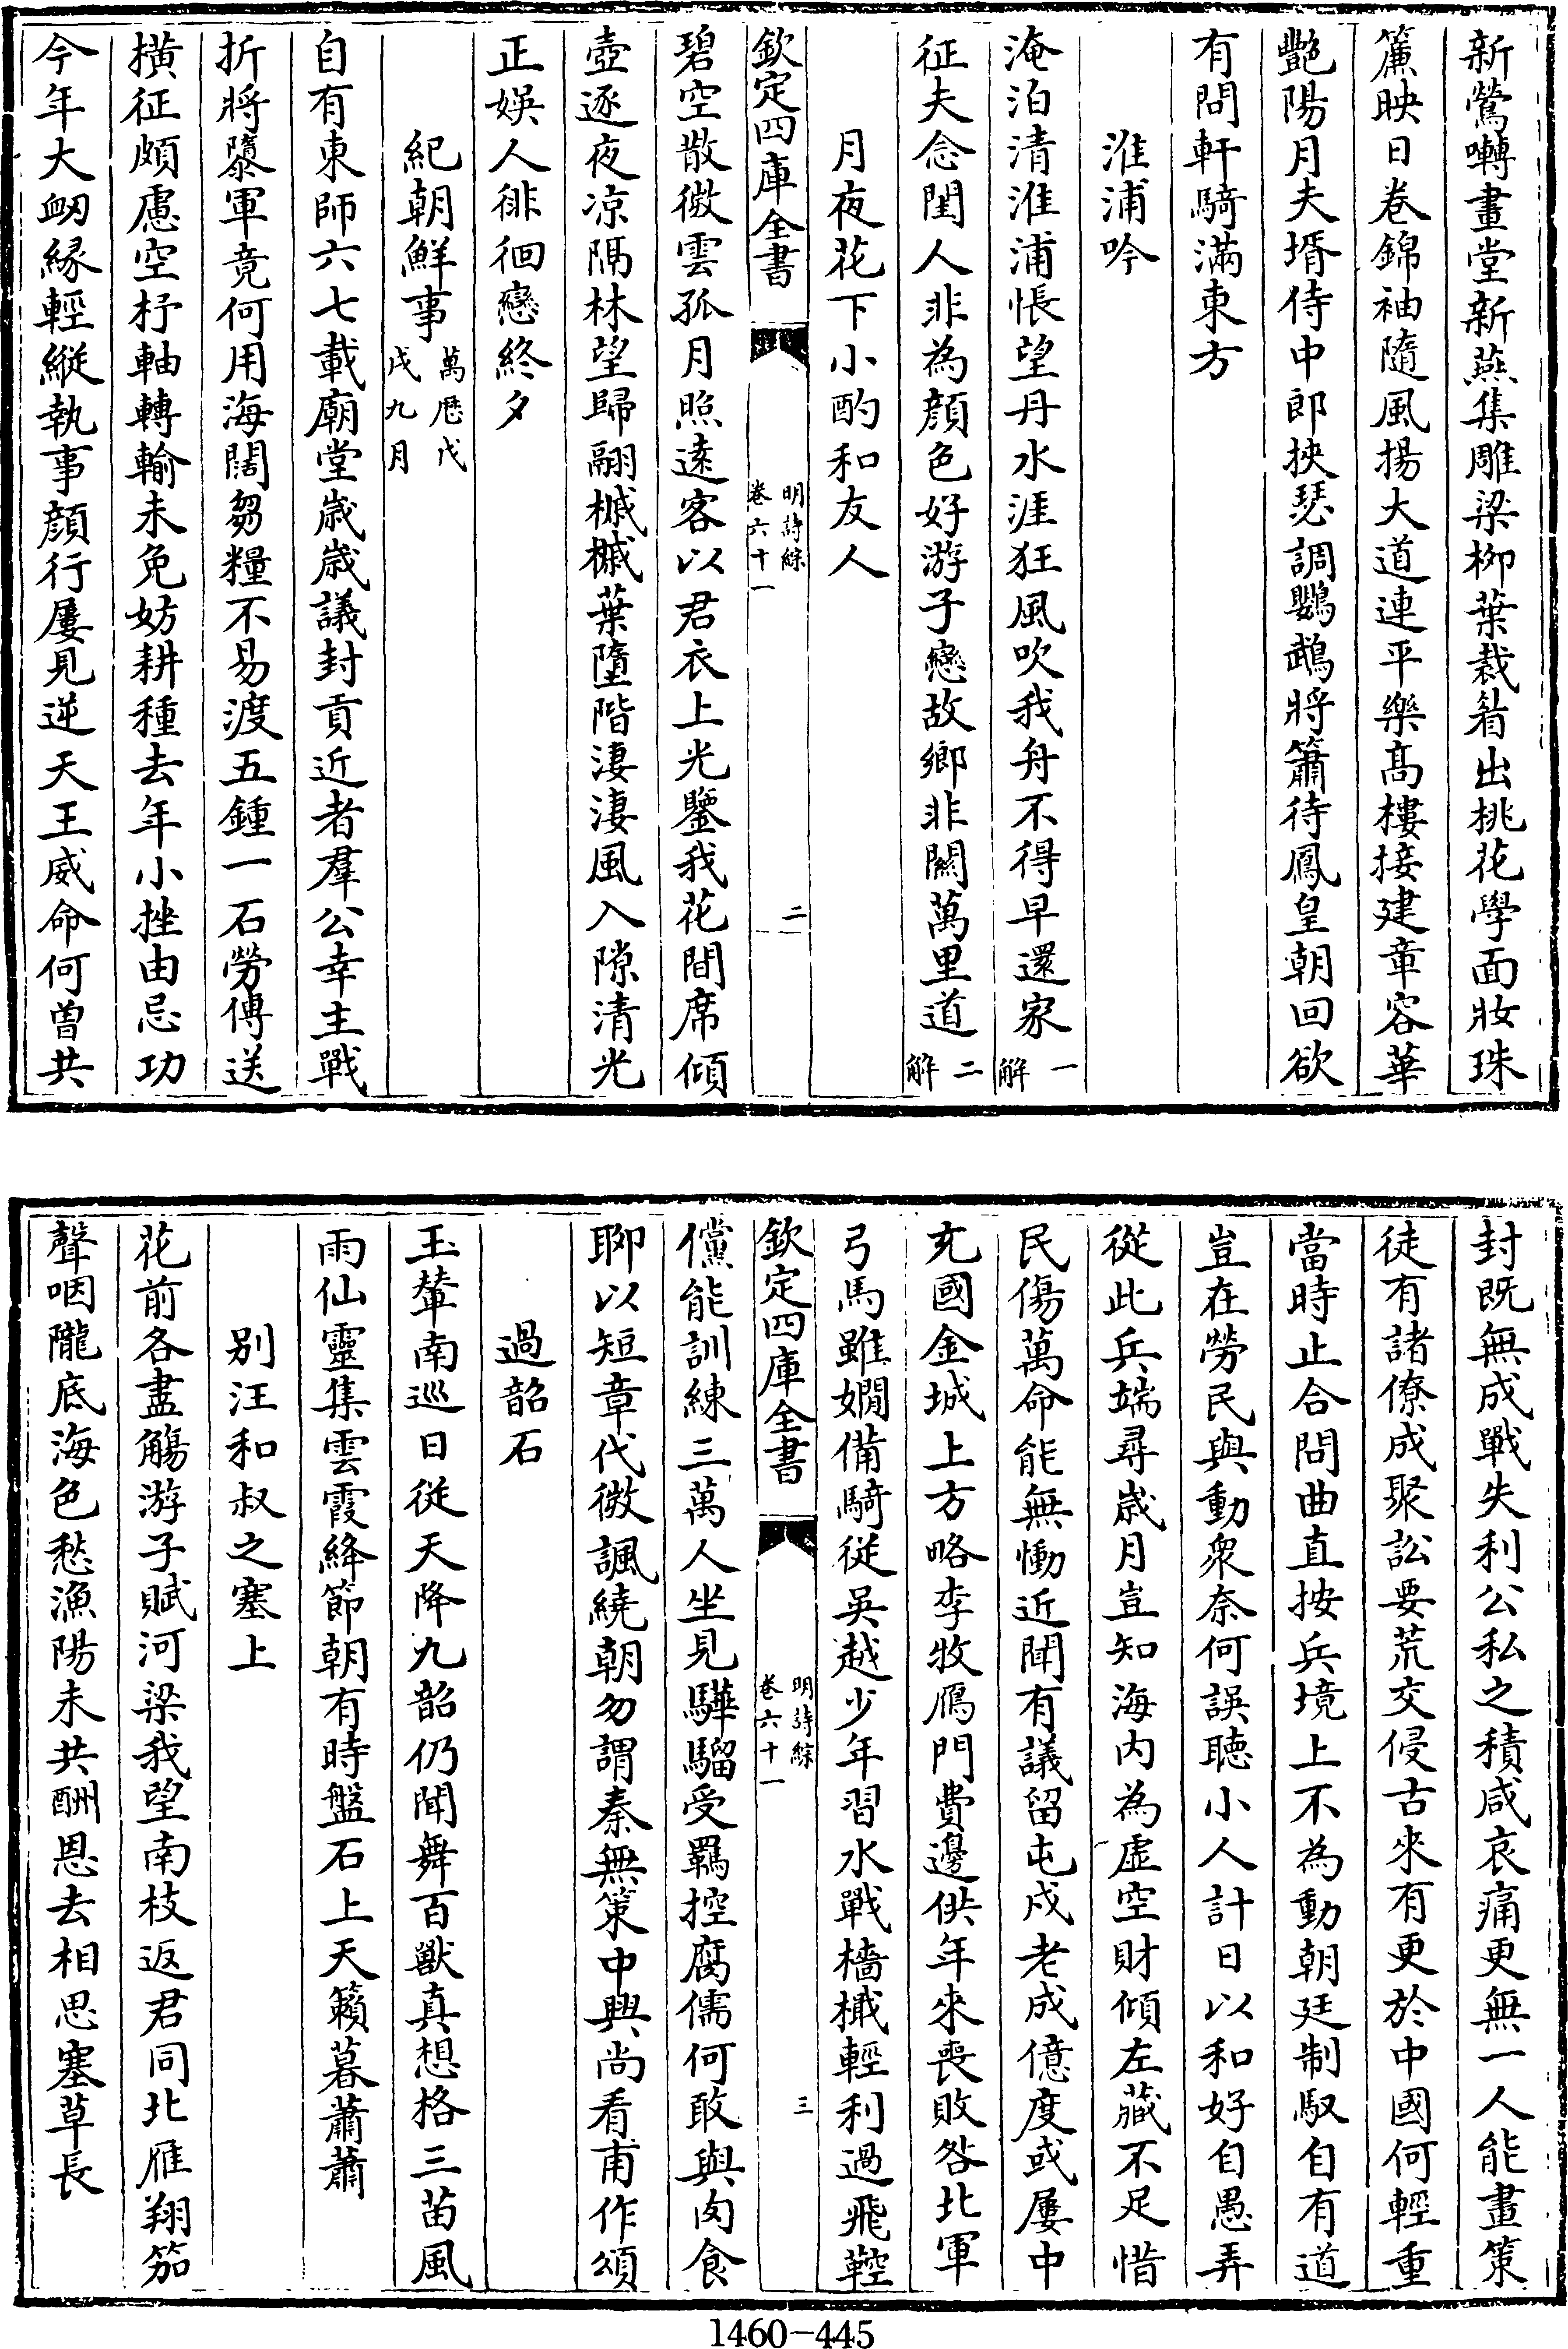 新鶯囀畫堂新燕集雕梁栁葉裁眉出桃花學面妝珠
簾映日卷錦袖隨風揚大道連平樂髙樓接建章容華
艷陽月夫壻侍中郎挾瑟調鸚鵡將簫待鳳皇朝回欲
有問軒騎滿東方
淮浦吟
淹泊清淮浦悵望丹水涯狂風吹我舟不得早還家一解
征夫念閨人非為顔色好游子戀故鄉非關萬里道二解
月夜花下小酌和友人
欽定四庫全書
明詩綜
卷六十一
二
碧空散微雲孤月照逺客以君衣上光鑒我花間席傾
壺逐夜凉隔林望歸翮槭槭葉墮階淒淒風入隙清光
正娛人徘徊戀終夕
紀朝鮮事萬厯戊戌九月
自有東師六七載廟堂嵗嵗議封貢近者羣公幸主戰
折將隳軍竟何用海闊芻糧不易渡五鍾一石勞傳送
橫征頗慮空杼軸轉輸未免妨耕種去年小挫由忌功
今年大衂緣輕縱執事顔行屢見逆天王威命何曾共
封既無成戰失利公私之積咸哀痛更無一人能畫策
徒有諸僚成聚訟要荒交侵古來有更於中國何輕重
當時止合問曲直按兵境上不為動朝廷制馭自有道
豈在勞民與動衆奈何誤聴小人計日以和好自愚弄
從此兵端尋嵗月豈知海内為虚空財傾左藏不足惜
民傷萬命能無慟近聞有議留屯戍老成億度或屢中
充國金城上方略李牧鴈門費邊供年來喪敗咎北軍
弓馬雖嫻備騎從吳越少年習水戰檣櫼輕利過飛鞚
欽定四庫全書
明詩綜
卷六十一
三
儻能訓練三萬人坐見驊騮受羈控腐儒何敢與肉食
聊以短章代微諷繞朝勿謂秦無策中興尚看甫作頌
過韶石
玉輦南巡日從天降九韶仍聞舞百獸真想格三苗風
雨仙靈集雲霞絳節朝有時盤石上天籟暮蕭蕭
别汪和叔之塞上
花前各盡觴游子賦河梁我望南枝返君同北雁翔笳
聲咽隴底海色愁漁陽未共酬恩去相思塞草長
1460-445